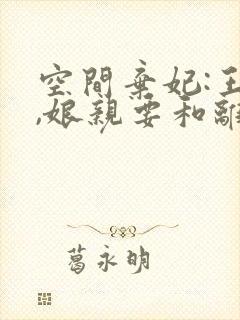 空間棄妃:王
,娘親要和離
葛永明